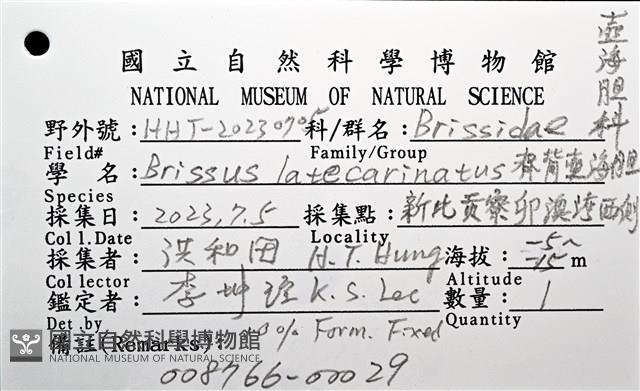 國立自然科學博物館
NATIONAL MUSEUM OF NATURAL SCIENCE
壺海胆科
野外號:HHT-20230705 科/群名:Brissidae
Field# Family/Group
學名:Brissus latecarinatus 脊背壺海胆
Species
採集日:2023,7.5 採集點:新北貢寮卯澳灣西側
Coll.Date Locality
採集者:洪和田 H.T. Hung 海拔:-5~-15m
Collector Altitude
鑑定者:李坤瑄 K.S. Lee 數量:1
Det.by Quantity
備註(Remarks) % Form. Fixed
國立自然科學博物館
NATIONAL MUSEUM OF NATURAL SCIENCE
008766-00029